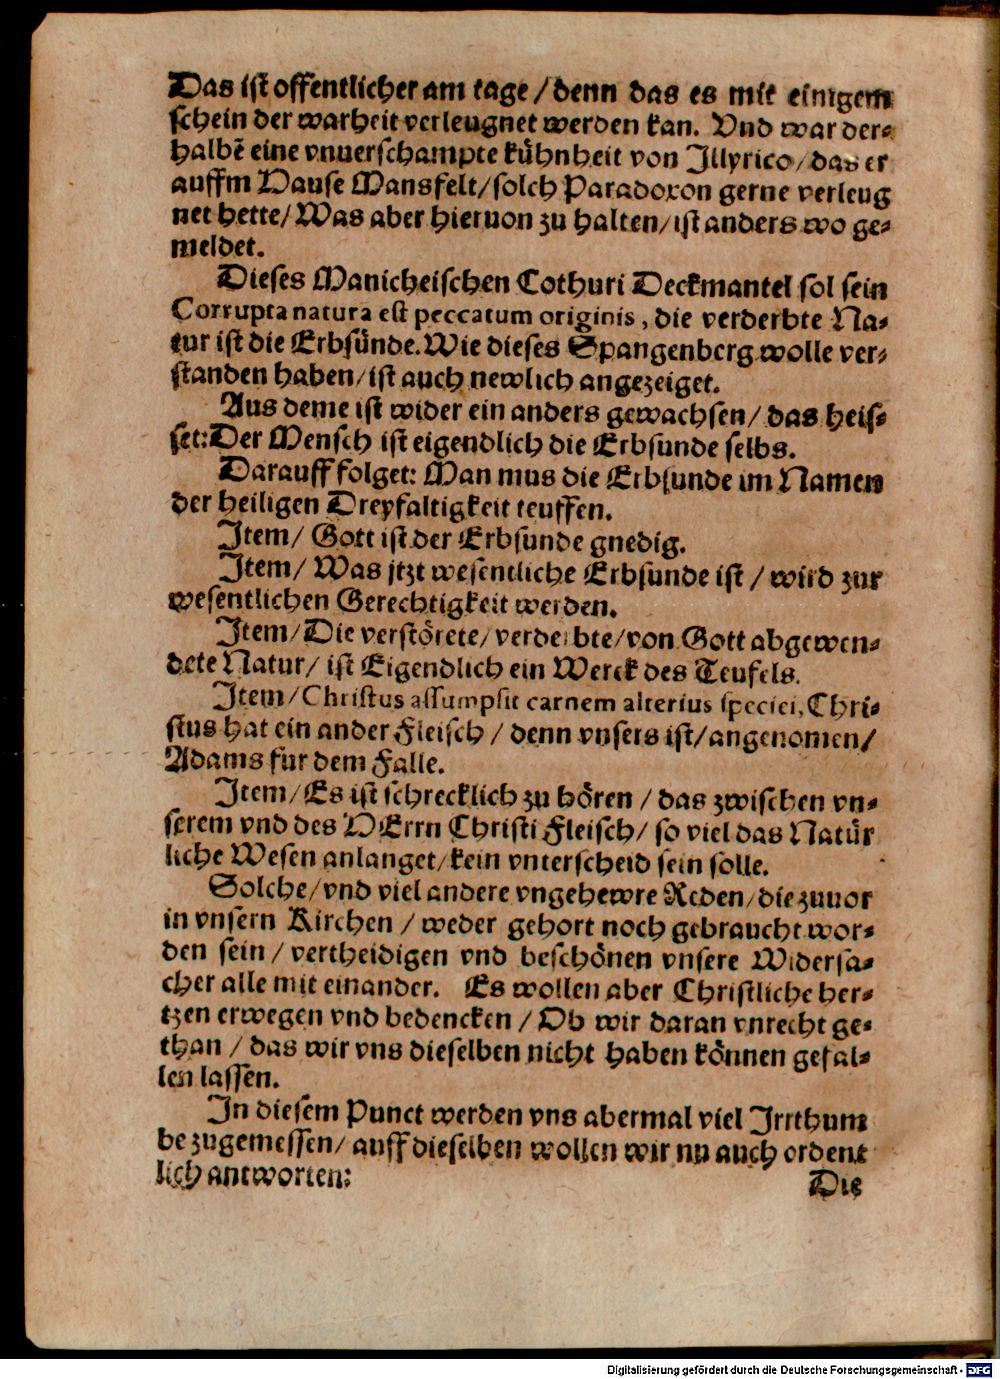 Das ist offentlicher am tage / denn das es mit einigem
schein der warheit verleugnet werden kan. Vnd war der-
halbē eine vnuerschampte kühnheit von Illyrico / das er
auffm Hause Mansfelt / solch Paradoxon gerne verleug
net hette / Was aber hieruon zu halten / ist anders wo ge-
meldet.
Dieses Manicheischen Cothuri Deckmantel sol sein
Corrupta natura est peccatum originis, die verderbte Na-
tur ist die Erbsünde. Wie dieses Spangenberg wolle ver-
standen haben / ist auch newlich angezeiget.
Aus deme ist wider ein anders gewachsen / das heis-
set: Der Mensch ist eigendlich die Erbsunde selbs.
Darauff folget: Man mus die Erbsunde im Namen
der heiligen Dreyfaltigkeit teuffen.
Item / Gott ist der Erbsunde gnedig.
Item / Was jtzt wesentliche Erbsunde ist / wird zur
wesentlichen Gerechtigkeit werden.
Item / Die verstörete / verderbte / von Gott abgewen-
dete Natur / ist Eigendlich ein Werck des Teufels.
Item / Christus assumpsit carnem alterius speciei, Chri-
stus hat ein ander Fleisch / denn vnsers ist / angenomen /
Adams für dem Falle.
Item / Es ist schrecklich zu hören / das zwischen vn-
serem vnd des HErrn Christi Fleisch / so viel das Natür
liche Wesen anlanget / kein vnterscheid sein solle.
Solche / vnd viel andere vngehewre Reden / die zuuor
in vnsern Kirchen / weder gehort noch gebraucht wor-
den sein / vertheidigen vnd beschönen vnsere Widersa-
cher alle mit einander. Es wollen aber Christliche her-
tzen erwegen vnd bedencken / Ob wir daran vnrecht ge-
than / das wir vns dieselben nicht haben können gefal-
len lassen.
In diesem Punct werden vns abermal viel Irrthum
be zugemessen / auff dieselben wollen wir nu auch ordent
lich antworten:
Die
Digitalisierung gefördert durch die Deutsche Forschungsgemeinschaft - DFG